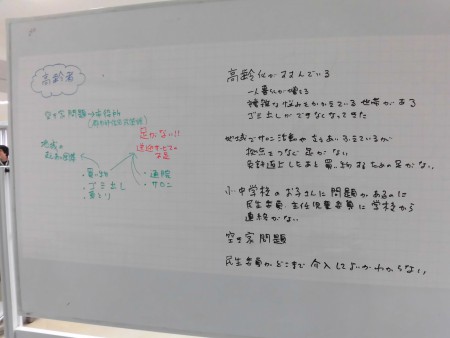 高齢者
空き家問題→市役所
足がない!!
送迎サービスの
不足
地域の
・買い物
・ゴミ出し
・通院
・サロン
高齢化がすすんでいる
一人暮らしが増える
複雑な悩みをかかえている世帯がある
ゴミ出しができなくなってきた
地域でサロン活動や
拠点まで 足がない
免許返上したあと買い物するための足がない。
小中学校のお子さんに問題があるのに
民生委員、主任児童委員に学校から
連絡がない
空き家問題
民生委員がどこまで介入してよいかわからない。